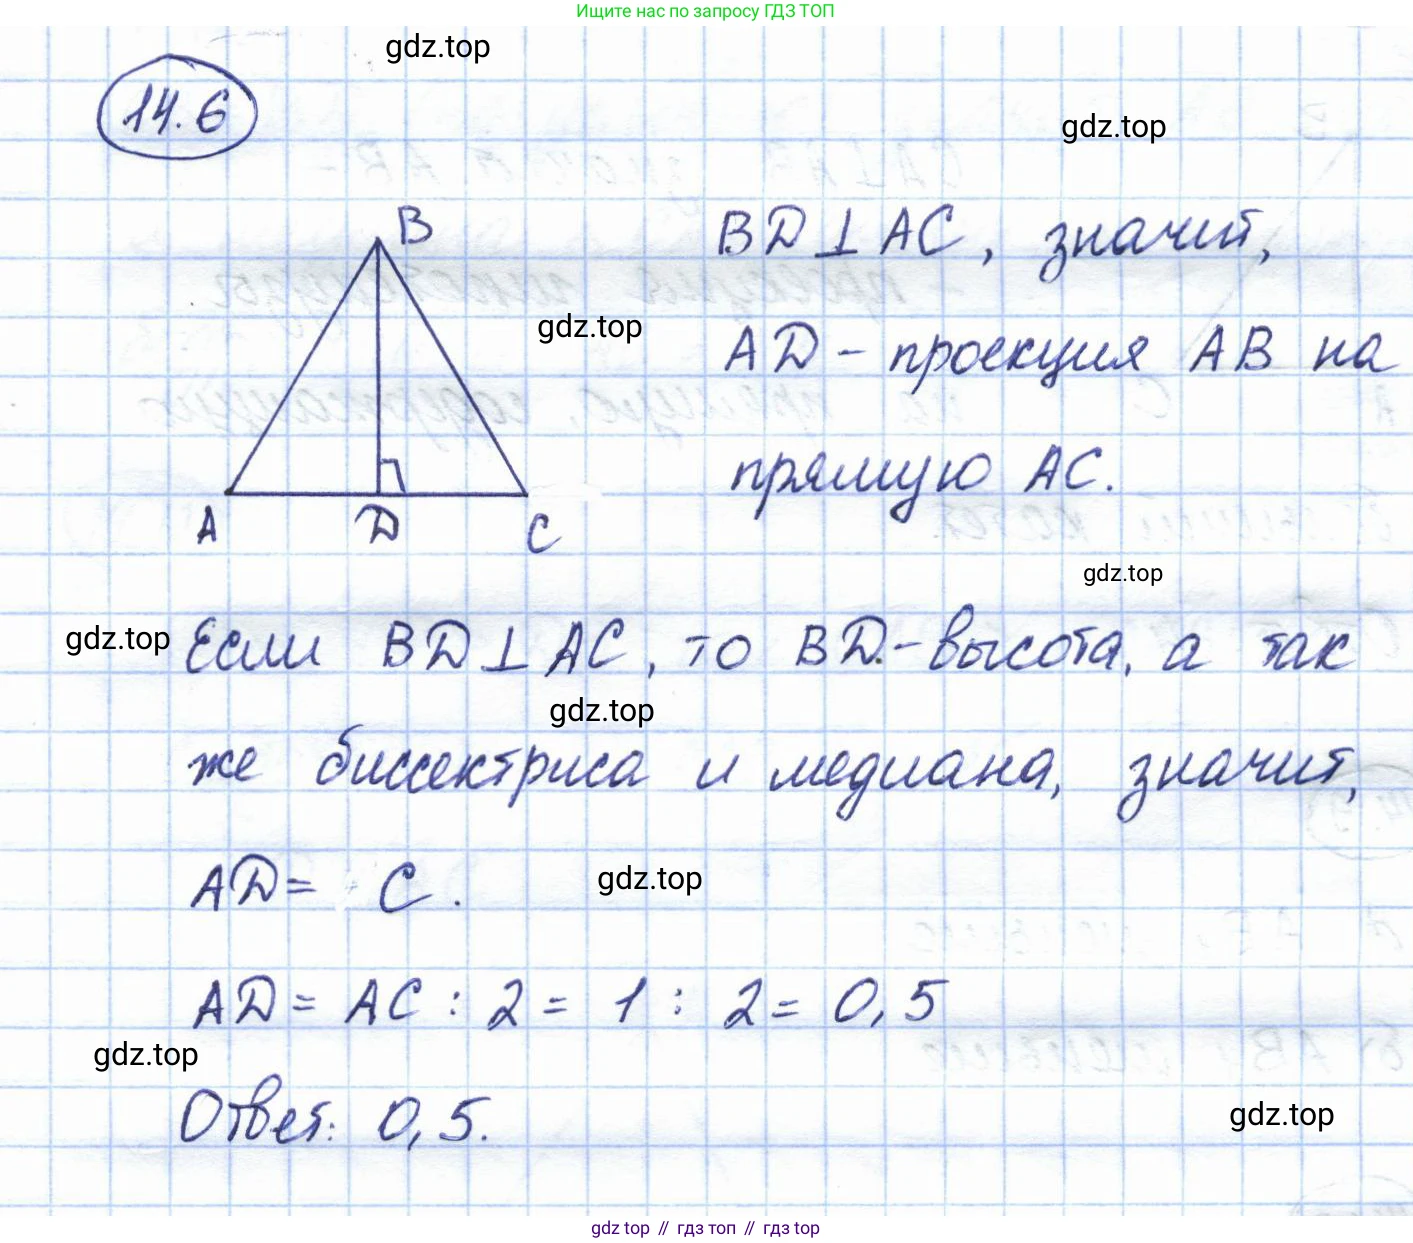 Ищите нас по запросу ГДЗ ТОП
gdz.top
14.6
gdz.top
B
BD⊥AC, значит,
gdz.top
AD - проекция AB на
прямую AC.
A D C
gdz.top
gdz.top
Если BD⊥AC, то BD - высота, а так
gdz.top
же биссектриса и медиана, значит,
AD= C.
gdz.top
AD = AC : 2 = 1 : 2 = 0,5
gdz.top
Ответ: 0,5.
gdz.top
gdz top // гдз топ // гдз top